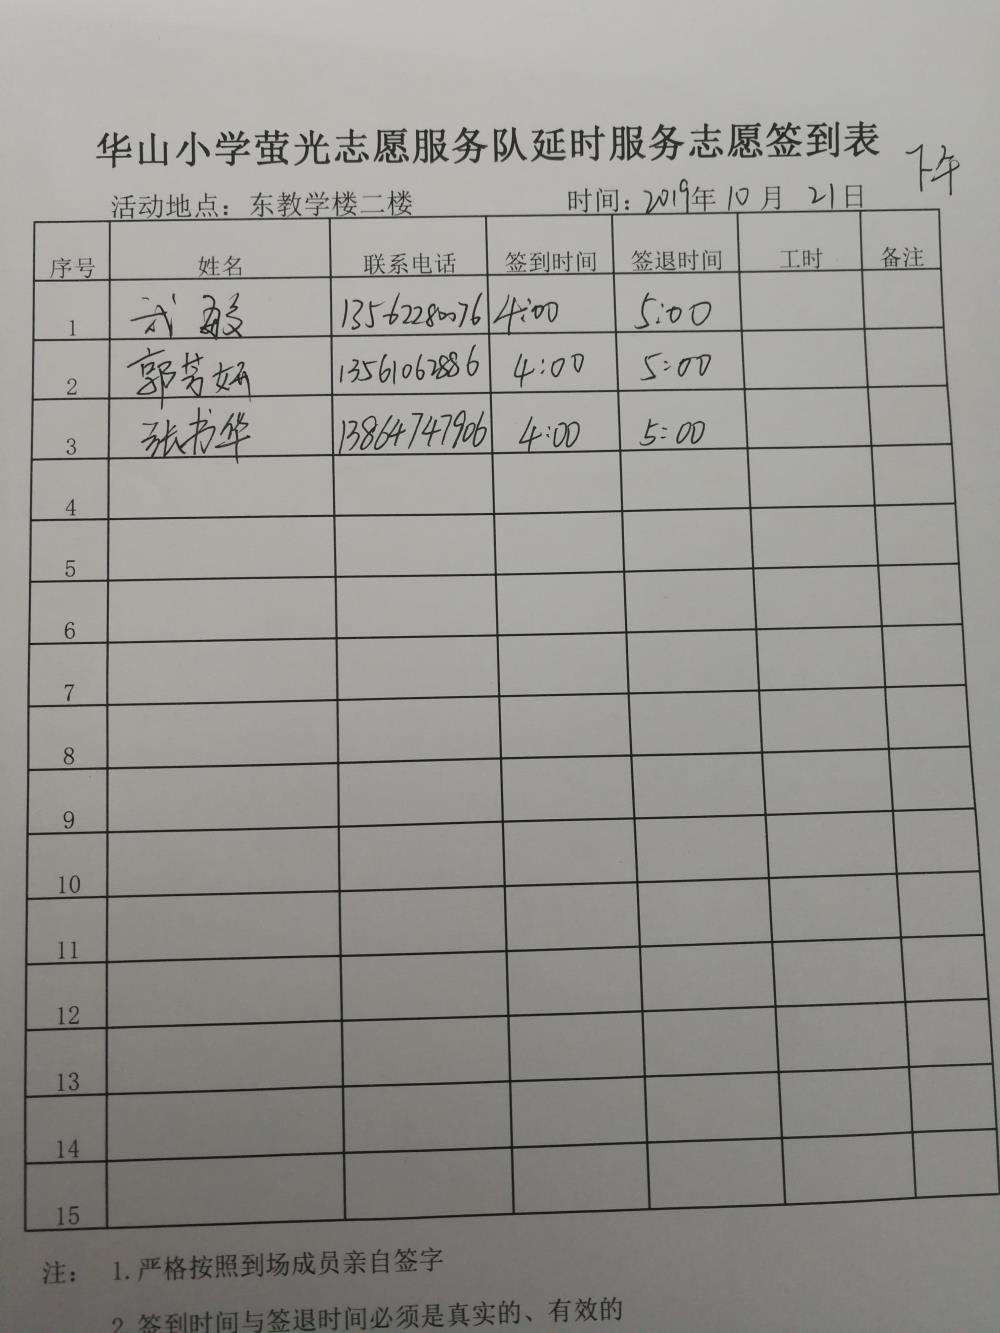 华山小学萤光志愿服务队延时服务志愿签到表
下午
活动地点：东教学楼二楼 时间：2019年10月21日
序号 姓名 联系电话 签到时间 签退时间 工时 备注
1 武敏 13562280076 4:00 5:00
2 郭芳妍 13561062886 4:00 5:00
3 张书华 13864747906 4:00 5:00
4
5
6
7
8
9
10
11
12
13
14
15
注： 1.严格按照到场成员亲自签字
2.签到时间与签退时间必须是真实的、有效的